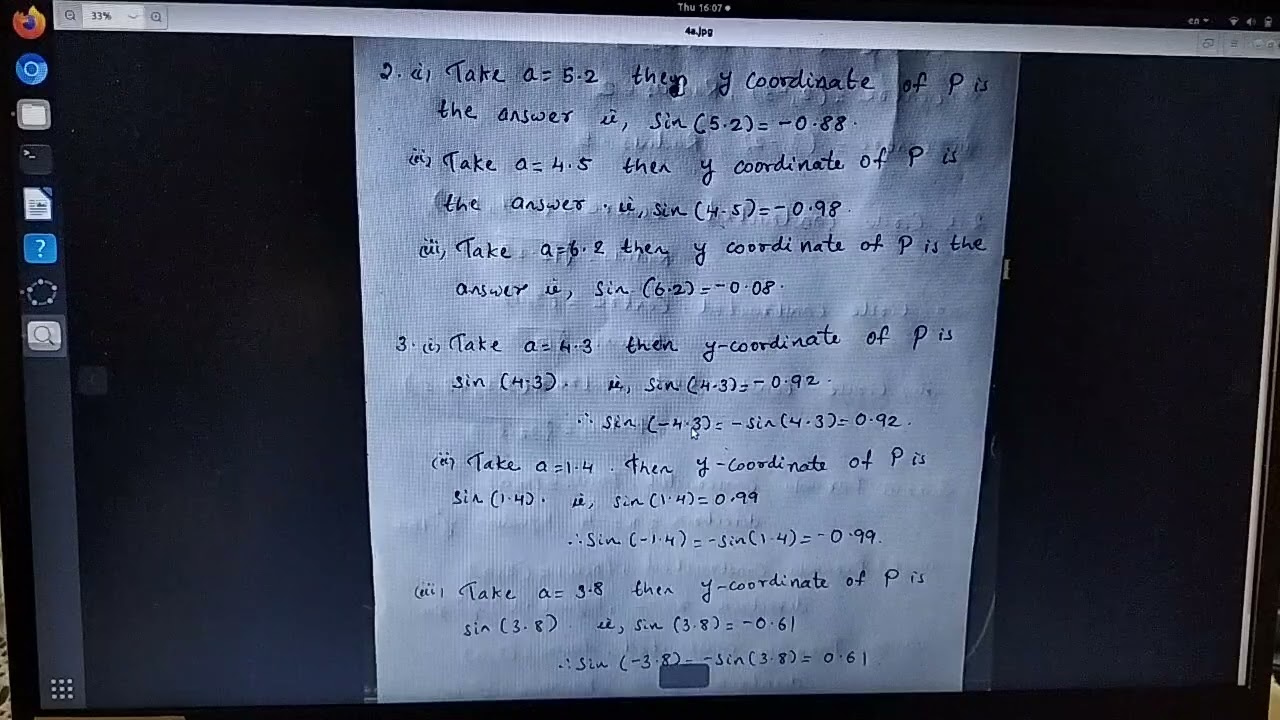 Thu 16:07
33%
en
4a.jpg
2. (i) Take a = 5.2 then y coordinate of P is
the answer ie, sin (5.2) = -0.88.
(ii) Take a = 4.5 then y coordinate of P is
the answer. ie, sin (4.5) = -0.98.
(iii) Take a = 6.2 then y coordinate of P is the
answer ie, sin (6.2) = -0.08.
3. (i) Take a = 4.3 then y-coordinate of P is
sin (4.3). ie, sin (4.3) = -0.92.
∴ sin (-4.3) = -sin(4.3) = 0.92.
(ii) Take a = 1.4. Then y-coordinate of P is
sin (1.4). ie, sin (1.4) = 0.99
∴ sin (-1.4) = -sin(1.4) = -0.99.
(iii) Take a = 3.8 then y-coordinate of P is
sin (3.8). ie, sin (3.8) = -0.61
∴ sin (-3.8) = -sin(3.8) = 0.61